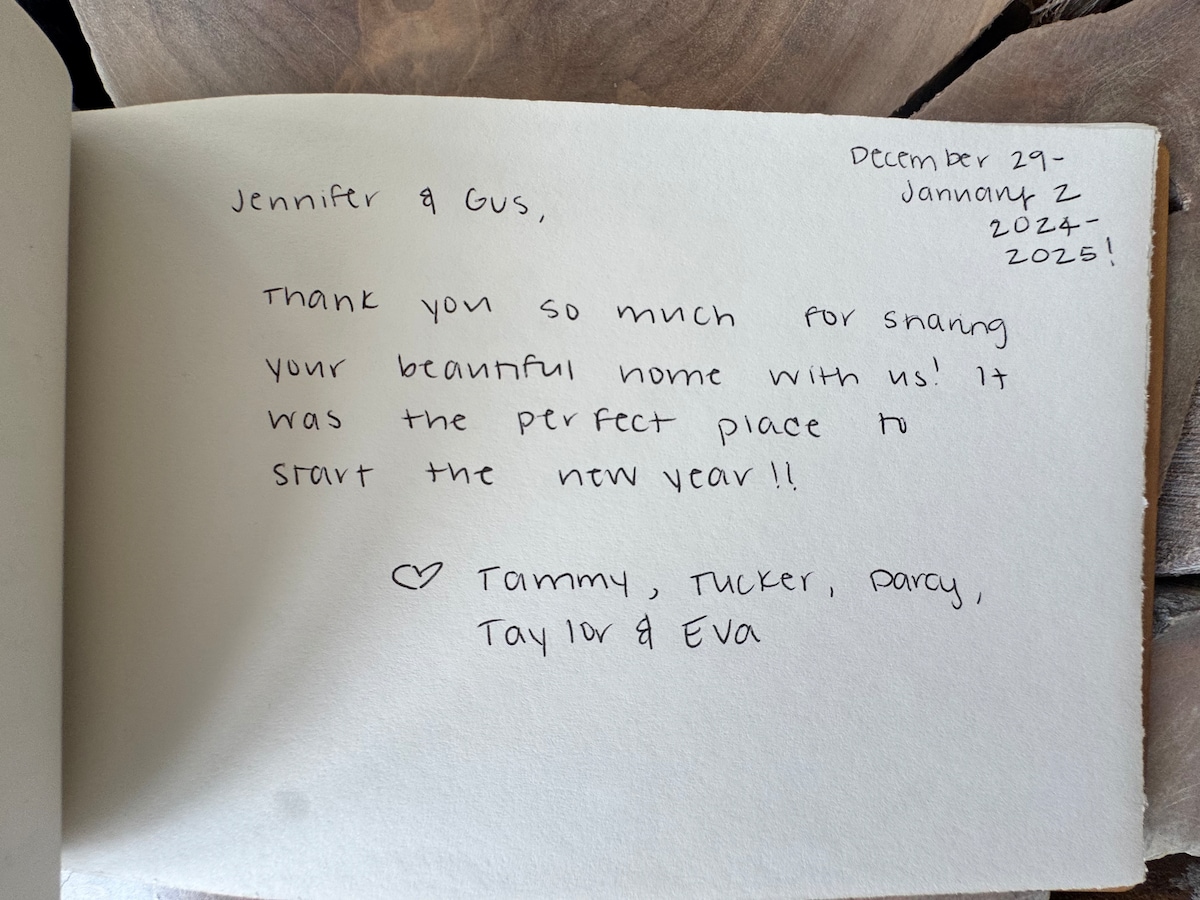 December 29-
January 2
2024-
2025!
Jennifer & Gus,
Thank you so much for sharing
your beautiful home with us! It
was the perfect place to
start the new year!!
♡ Tammy, Tucker, Darcy,
Taylor & Eva